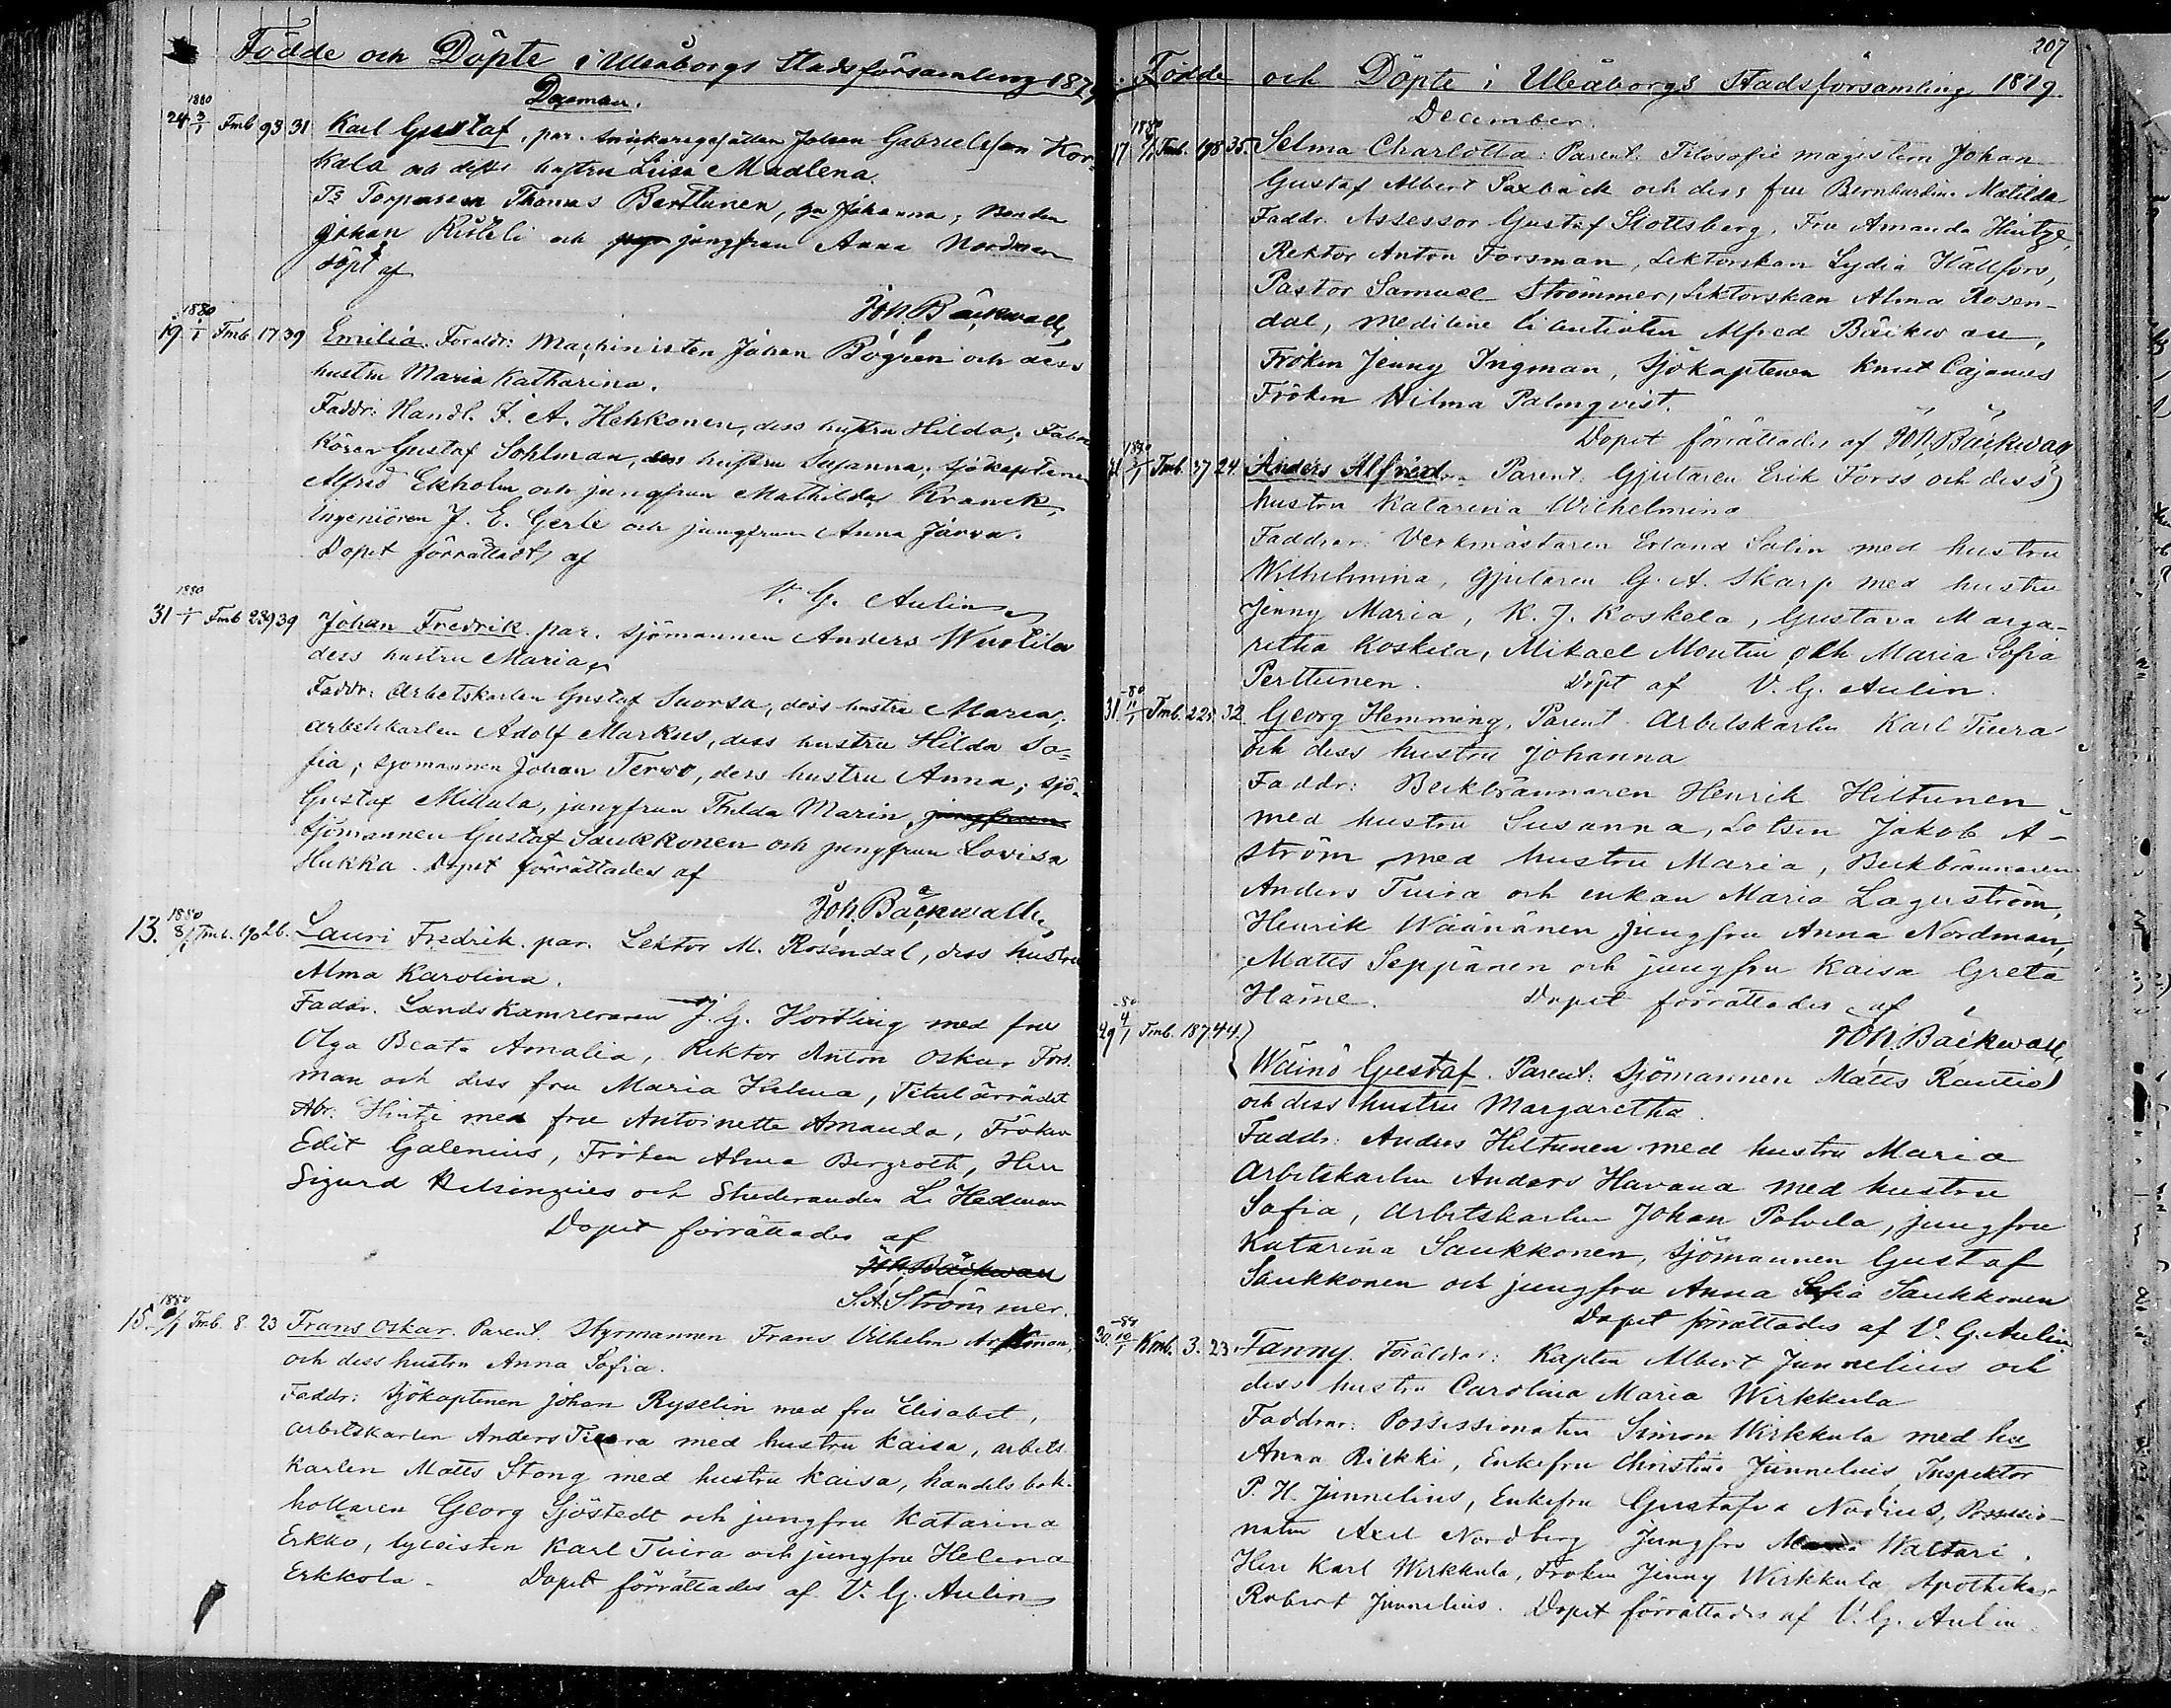 Födde och Döpte i Uleåborgs Stadsförsamling 1879
1880
24 3/1 Tmb 93 31 Karl Gustaf, par. Snickaregesällen Johan Gabrielsson Kor-
kala och dess hustru Lisa Madlena.
Torparen Thomas Berttunen, Johanna; Bonden
Johan och jungfrun Anna Nordman
döpt af
Joh. Bäckwall
1880
19 1/1 Tmb 17 39 Emilia. Föräldr: Machinisten Johan Bogren och dess
hustru Maria Katharina.
Faddr: Handl. F. A. Hehkonen, dess hustru Hilda;
Gustaf Sohlman, dess hustru Susanna; Sjökaptenen
Alfred Ekholm och jungfrun Mathilda Kranck,
Ingeniören J. E. Gerle och jungfrun Anna Järva.
Dopet förrättadt af
V. G. Aulin
1880
31 1/1 Tmb 239 39 Johan Fredrik. par. Sjömannen Anders
dess hustru Maria
Faddr: Arbetskarlen Gustaf Suorsa, dess hustru Maria;
arbetskarlen Adolf Markus, dess hustru Hilda So-
fia; Sjömannen Johan Terwo, dess hustru Anna; Sjö-
Gustaf Mittula, jungfrun Thilda Marin, jungfrun
Sjömannen Gustaf Saukkonen och jungfrun Lovisa
Hukka. Dopet förrättades af
Joh. Bäckwall
1880
13. 8/1 Tmb. 190 26. Lauri Fredrik. par. Lektor M. Rosendal, dess hustru
Alma Karolina.
Faddr. Landskamreraren J. G. Hortling med fru
Olga Beata Amalia, Rektor Anton Oskar Fors-
man och dess fru Maria Helena, Titulärrådet
Abr. Hintze med fru Antoinette Amanda, Fröken
Edit Galenius, Fröken Alma Bergroth, Herr
Sigurd Helsingius och Studeranden L. Hedman
Dopet förrättades af
Joh. Bäckwall
S. A. Strömmer.
1880
15. 6/1 Tmb. 8. 23 Frans Oskar. Parent. Styrmannen Frans Vilhelm
och dess hustru Anna Sofia.
Faddr: Sjökaptenen Johan Ryselin med fru Elisabet,
arbetskarlen Anders Tuira med hustru Kaisa, arbets-
karlen Matts Stong med hustru Kaisa, handels bok-
hållaren Georg Sjöstedt och jungfru Katarina
Erkko, lyceisten Karl Tuira och jungfru Helena
Erkkola. Dopet förrättades af V. G. Aulin
207
Födde och Döpte i Uleåborgs Stadsförsamling 1879.
December.
1880
17 Tmb. 198 35. Selma Charlotta: Parent: Filosofie magistern Johan
Gustaf Albert Saxbäck och dess fru Bernhardina Matilda
Faddr. Assessor Gustaf Stottsberg, Fru Amanda Hintze,
Rektor Anton Forsman, Lektorskan Lydia Hällfors,
Pastor Samuel Strömmer, Lektorskan Alma Rosen-
dal, Medicine licentiaten Alfred Bäckwall,
Fröken Jenny Ingman, Sjökaptenen Knut Cajanus
Fröken Hilma Palmqvist.
Dopet förrättades af Joh. Bäckwall
1880
21 Tmb. 37 24. Anders Alfred. Parent: Gjutaren Erik Forss och dess
hustru Katarina Wilhelmina
Faddrar: Verkmästaren Erland Salin med hustru
Wilhelmina, Gjutaren G. A. Skarp med hustru
Jenny Maria, K. J. Koskela, Gustava Marga-
retha Koskela, Mikael Montin och Maria Sofia
Perttunen. Döpt af V. G. Aulin.
-80
31 11/1 Tmb. 225 32. Georg Hemming. Parent. Arbetskarlen Karl Tuira
och dess hustru Johanna
Faddr: Beckbrännaren Henrik Hiltunen
med hustru Susanna, Lotsen Jakob Å-
ström med hustru Maria, Beckbrännaren
Anders Tuira och enkan Maria Lagerström,
Henrik Wäänänen jungfru Anna Nordman,
Matts Seppänen och jungfru Kaisa Greta
Häme. Dopet förrättades af
Joh. Bäckwall
-80
29 4/1 Tmb. 187. 44.
Wäinö Gustaf. Parent: Sjömannen Matts Rautio
och dess hustru Margaretha.
Faddr: Anders Hiltunen med hustru Maria
Arbetskarlen Anders Havana med hustru
Sofia, Arbetskarlen Johan Polvela, jungfru
Katarina Saukkonen, Sjömannen Gustaf
Saukkonen och jungfru Anna Sofia Saukkonen
Dopet förrättades af V. G. Aulin
30. 10/1 Kmb. 3. 23. Fanny. Föräldrar: Kapten Albert Junnelius och
dess hustru Carolina Maria Wirkkula
Faddrar: Possessionaten Simon Wirkkula med hu
Anna Rickki, Enkefru Christina Junnelius, Inspektor
P. H. Junnelius, Enkefru Gustafva Nodius, Possessio-
naten Axel Nordberg Jungfru Maria Waltari,
Herr Karl Wirkkula, Fröken Jenny Wirkkula, Apothekar
Robert Junnelius. Dopet förrättades af V. G. Aulin